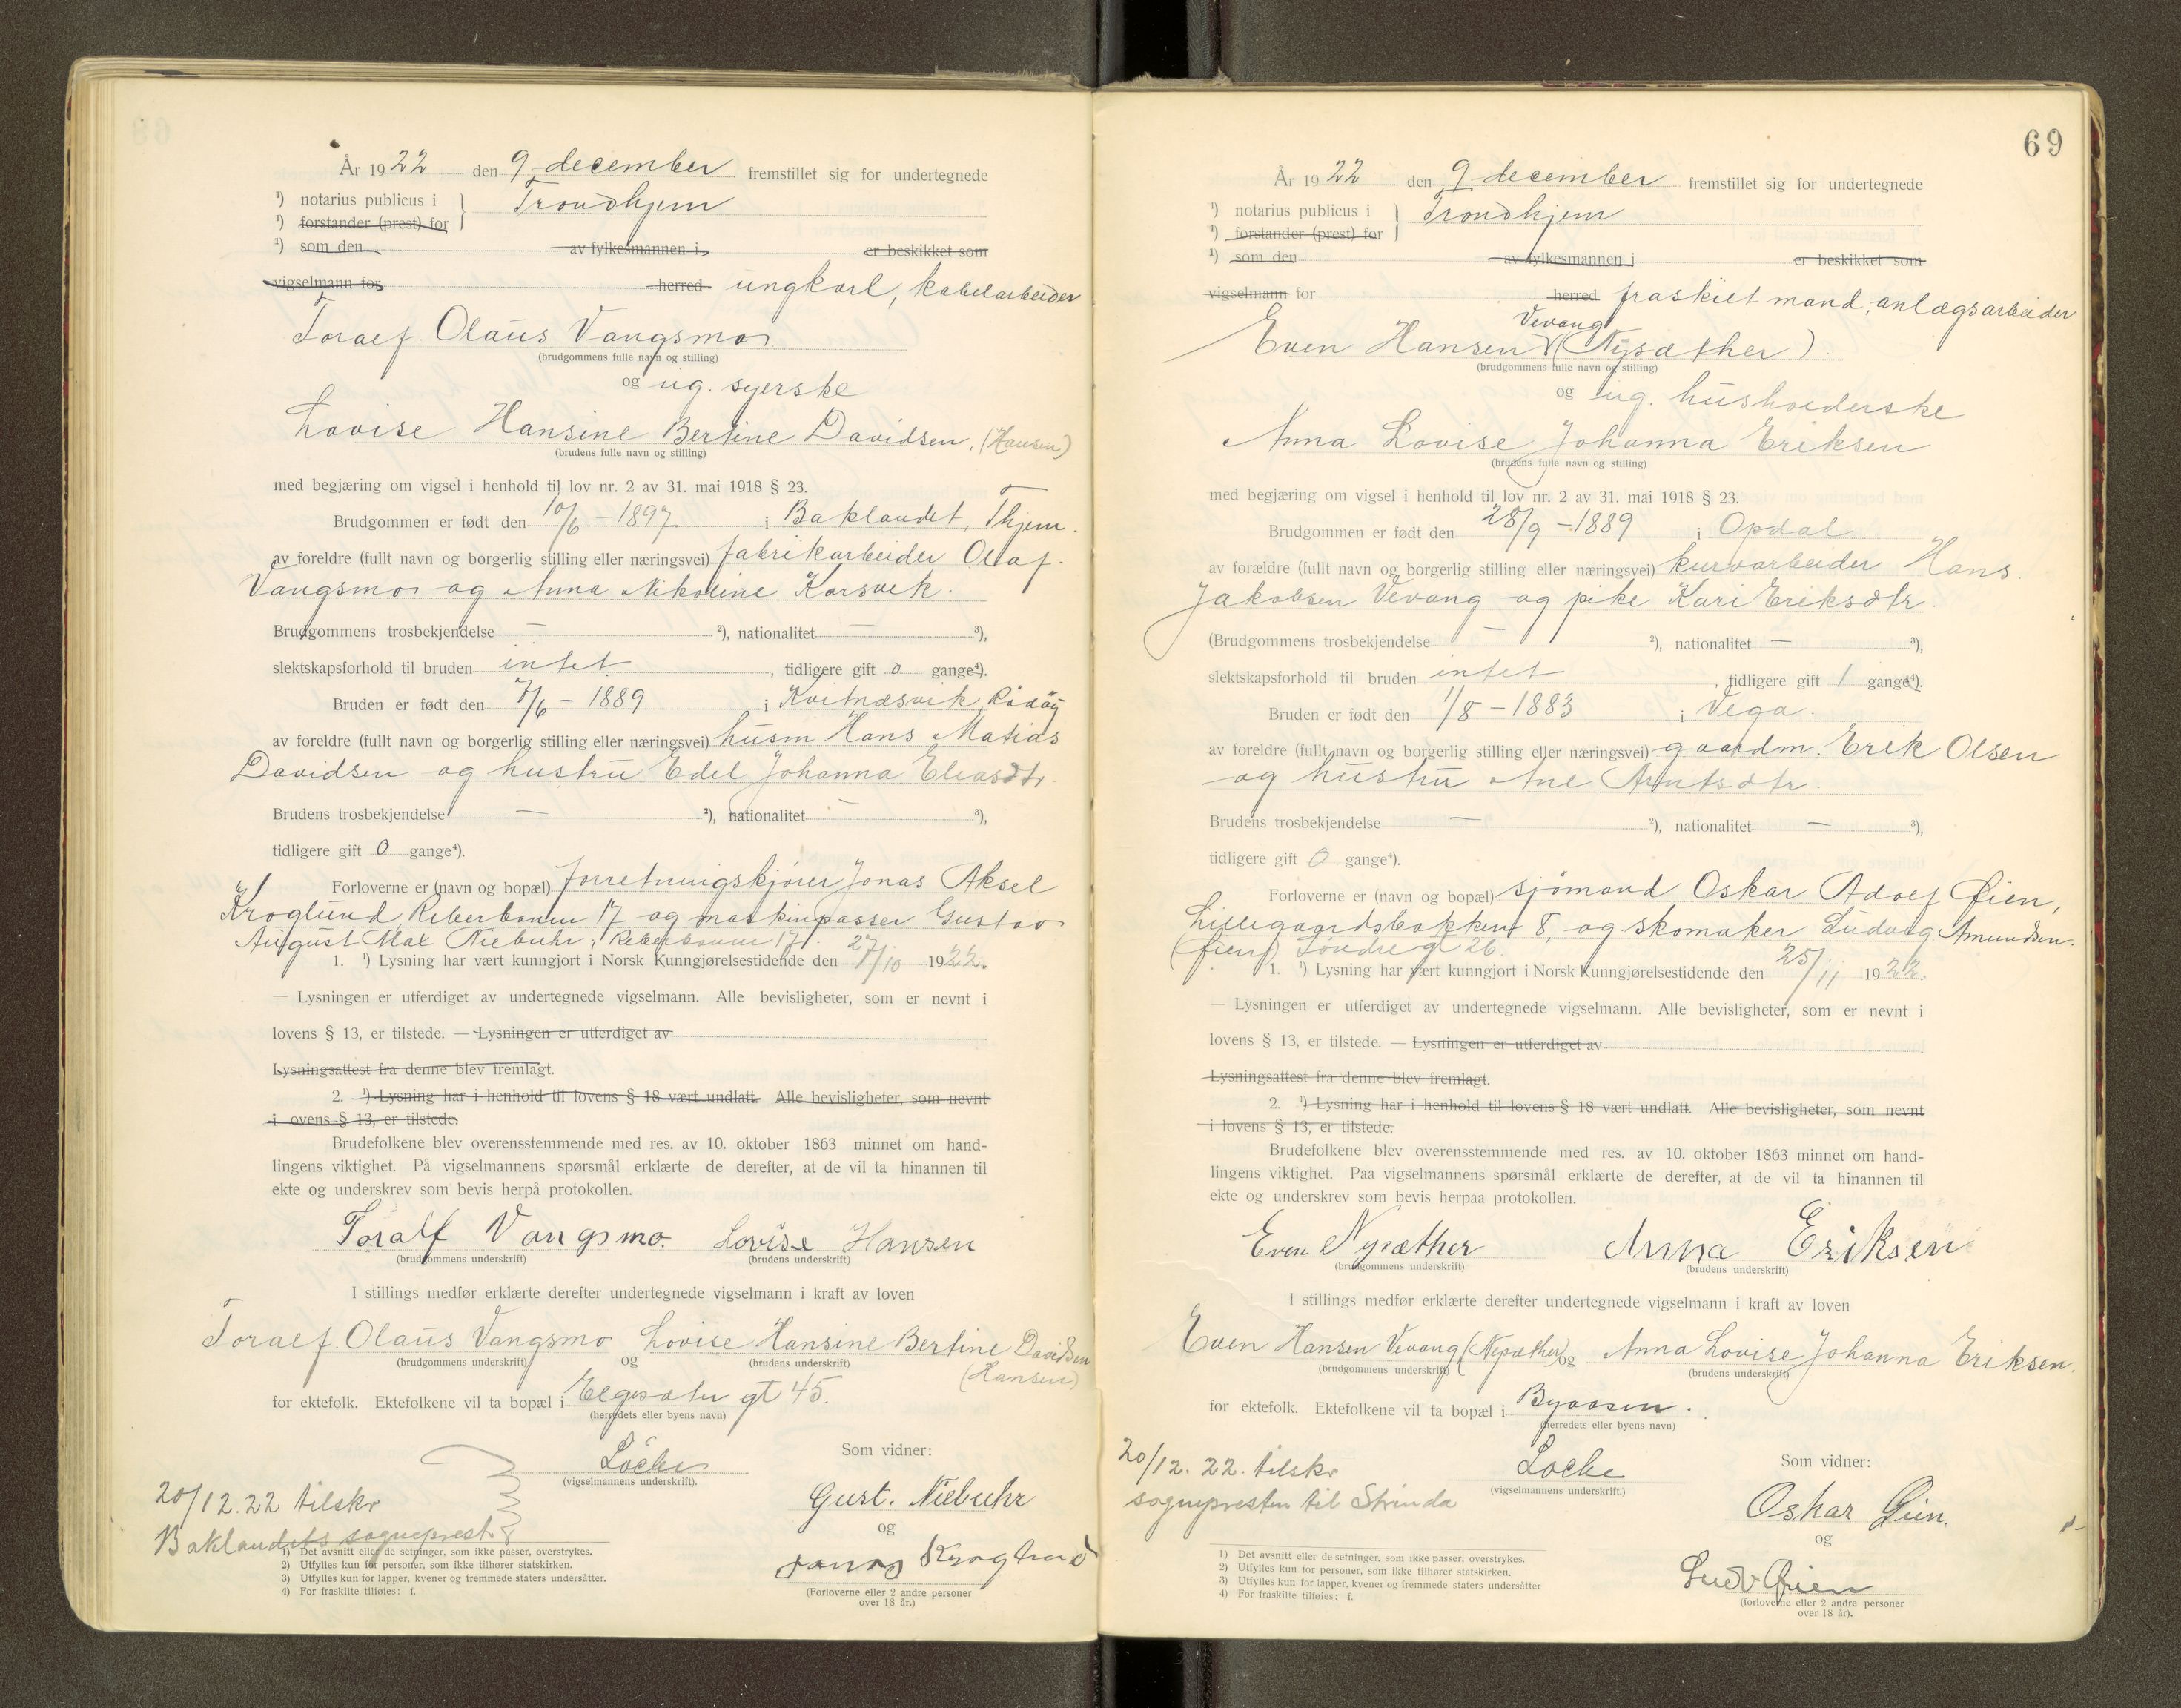 År 1922 den 9 december fremstillet sig for undertegnede
¹) notarius publicus i } Trondhjem
¹) forstander (prest) for
¹) som den av fylkesmannen i er beskikket som
vigselmann for herred ungkarl, kabelarbeider
Toralf Olaus Vangsmo
(brudgommens fulle navn og stilling)
og ug. syerske
Lovise Hansine Bertine Davidsen. (Hansen)
(brudens fulle navn og stilling)
med begjæring om vigsel i henhold til lov nr. 2 av 31. mai 1918 § 23.
Brudgommen er født den 10/6 - 1897 i Baklandet, Thjem.
av foreldre (fullt navn og borgerlig stilling eller næringsvei) fabrikarbeider Olaf
Vangsmo og Anna Nikoline Korsvik.
Brudgommens trosbekjendelse — ²), nationalitet — ³),
slektskapsforhold til bruden intet, tidligere gift 0 gange⁴).
Bruden er født den 7/6 - 1889 i Kvitnæsvik, Rödöy
av foreldre (fullt navn og borgerlig stilling eller næringsvei) husm Hans Matias
Davidsen og hustru Edel Johanna Eliasdtr.
Brudens trosbekjendelse — ²), nationalitet — ³),
tidligere gift 0 gange⁴).
Forloverne er (navn og bopæl) forretningskjører Jonas Aksel
Kroglund, Reberbanen 17 og maskinpasser Gustav
August Max Niebuhr, Reberbanen 17.
1. ¹) Lysning har vært kunngjort i Norsk Kunngjørelsestidende den 27/10 1922.
— Lysningen er utferdiget av undertegnede vigselmann. Alle bevisligheter, som er nevnt i
lovens § 13, er tilstede. — Lysningen er utferdiget av
Lysningsattest fra denne blev fremlagt.
2. ¹) Lysning har i henhold til lovens § 18 vært undlatt. Alle bevisligheter, som nevnt
i ovens § 13, er tilstede.
Brudefolkene blev overensstemmende med res. av 10. oktober 1863 minnet om hand-
lingens viktighet. På vigselmannens spørsmål erklærte de derefter, at de vil ta hinannen til
ekte og underskrev som bevis herpå protokollen.
Toralf Vangsmo. Lovise Hansen
(brudgommens underskrift) (brudens underskrift)
I stillings medfør erklærte derefter undertegnede vigselmann i kraft av loven
Toralf Olaus Vangsmo og Lovise Hansine Bertine Davidsen
(brudgommens underskrift) (brudens underskrift) (Hansen)
for ektefolk. Ektefolkene vil ta bopæl i Elgesæter gt 45.
(herredets eller byens navn)
Löchen Som vidner:
(vigselmannens underskrift).
20/12.22 tilskr
Baklandets sogneprest
Gust. Niebuhr
og
Jonas Kroglund
(Forloverne eller 2 andre personer
over 18 år.)
1) Det avsnitt eller de setninger, som ikke passer, overstrykes.
2) Utfylles kun for personer, som ikke tilhører statskirken.
3) Utfylles kun for lapper, kvener og fremmede staters undersåtter.
4) For fraskilte tilføies: f.
69
År 1922 den 9 december fremstillet sig for undertegnede
¹) notarius publicus i } Trondhjem
¹) forstander (prest) for
¹) som den av fylkesmannen i er beskikket som
vigselmann for herred fraskilt mand, anlægsarbeider
Vevang
Even Hansen (Nysæther)
(brudgommens fulle navn og stilling)
og ug. husholderske
Anna Lovise Johanna Eriksen
(brudens fulle navn og stilling)
med begjæring om vigsel i henhold til lov nr. 2 av 31. mai 1918 § 23.
Brudgommen er født den 28/9 - 1889 i Opdal
av forældre (fullt navn og borgerlig stilling eller næringsvei) kurvarbeider Hans
Jakobsen Vevang og pike Kari Eriksdtr.
(Brudgommens trosbekjendelse — ²), nationalitet — ³),
slektskapsforhold til bruden intet, tidligere gift 1 gange⁴).
Bruden er født den 1/8 - 1883 i Vega.
av foreldre (fullt navn og borgerlig stilling eller næringsvei) gaardm. Erik Olsen
og hustru Ane Arntsdtr.
Brudens trosbekjendelse — ²), nationalitet — ³),
tidligere gift 0 gange⁴).
Forloverne er (navn og bopæl) sjömand Oskar Adolf Øien,
Lillegaardsbakken 8, og skomaker Ludvig Amundsen.
(Øien) Søndregt 26.
1. ¹) Lysning har vært kunngjort i Norsk Kunngjørelsestidende den 25/11 1922.
— Lysningen er utferdiget av undertegnede vigselmann. Alle bevisligheter, som er nevnt i
lovens § 13, er tilstede. — Lysningen er utferdiget av
Lysningsattest fra denne blev fremlagt.
2. ¹) Lysning har i henhold til lovens § 18 vært undlatt. Alle bevisligheter, som nevnt
i lovens § 13, er tilstede.
Brudefolkene blev overensstemmende med res. av 10. oktober 1863 minnet om hand-
lingens viktighet. Paa vigselmannens spørsmål erklærte de derefter, at de vil ta hinannen til
ekte og underskrev som bevis herpaa protokollen.
Even Nysæther Anna Eriksen
(brudgommens underskrift) (brudens underskrift)
I stillings medfør erklærte derefter undertegnede vigselmann i kraft av loven
Even Hansen Vevang (Nysæther) og Anna Lovise Johanna Eriksen.
(brudgommens underskrift) (brudens underskrift)
for ektefolk. Ektefolkene vil ta bopæl i Byaasen.
(herredets eller byens navn)
20/12. 22. tilskr
sognepresten til Strinda
Löchen Som vidner:
(vigselmannens underskrift.)
Oskar Øien.
og
Ludv Øien
(forloverne eller 2 andre personer
over 18 år).
1) Det avsnitt eller de setninger, som ikke passer, overstrykes.
2) Utfylles kun for personer, som ikke tilhører statskirken.
3) Utfylles kun for lapper, kvener og fremmede staters undersåtter
4) For fraskilte tilføies: f.